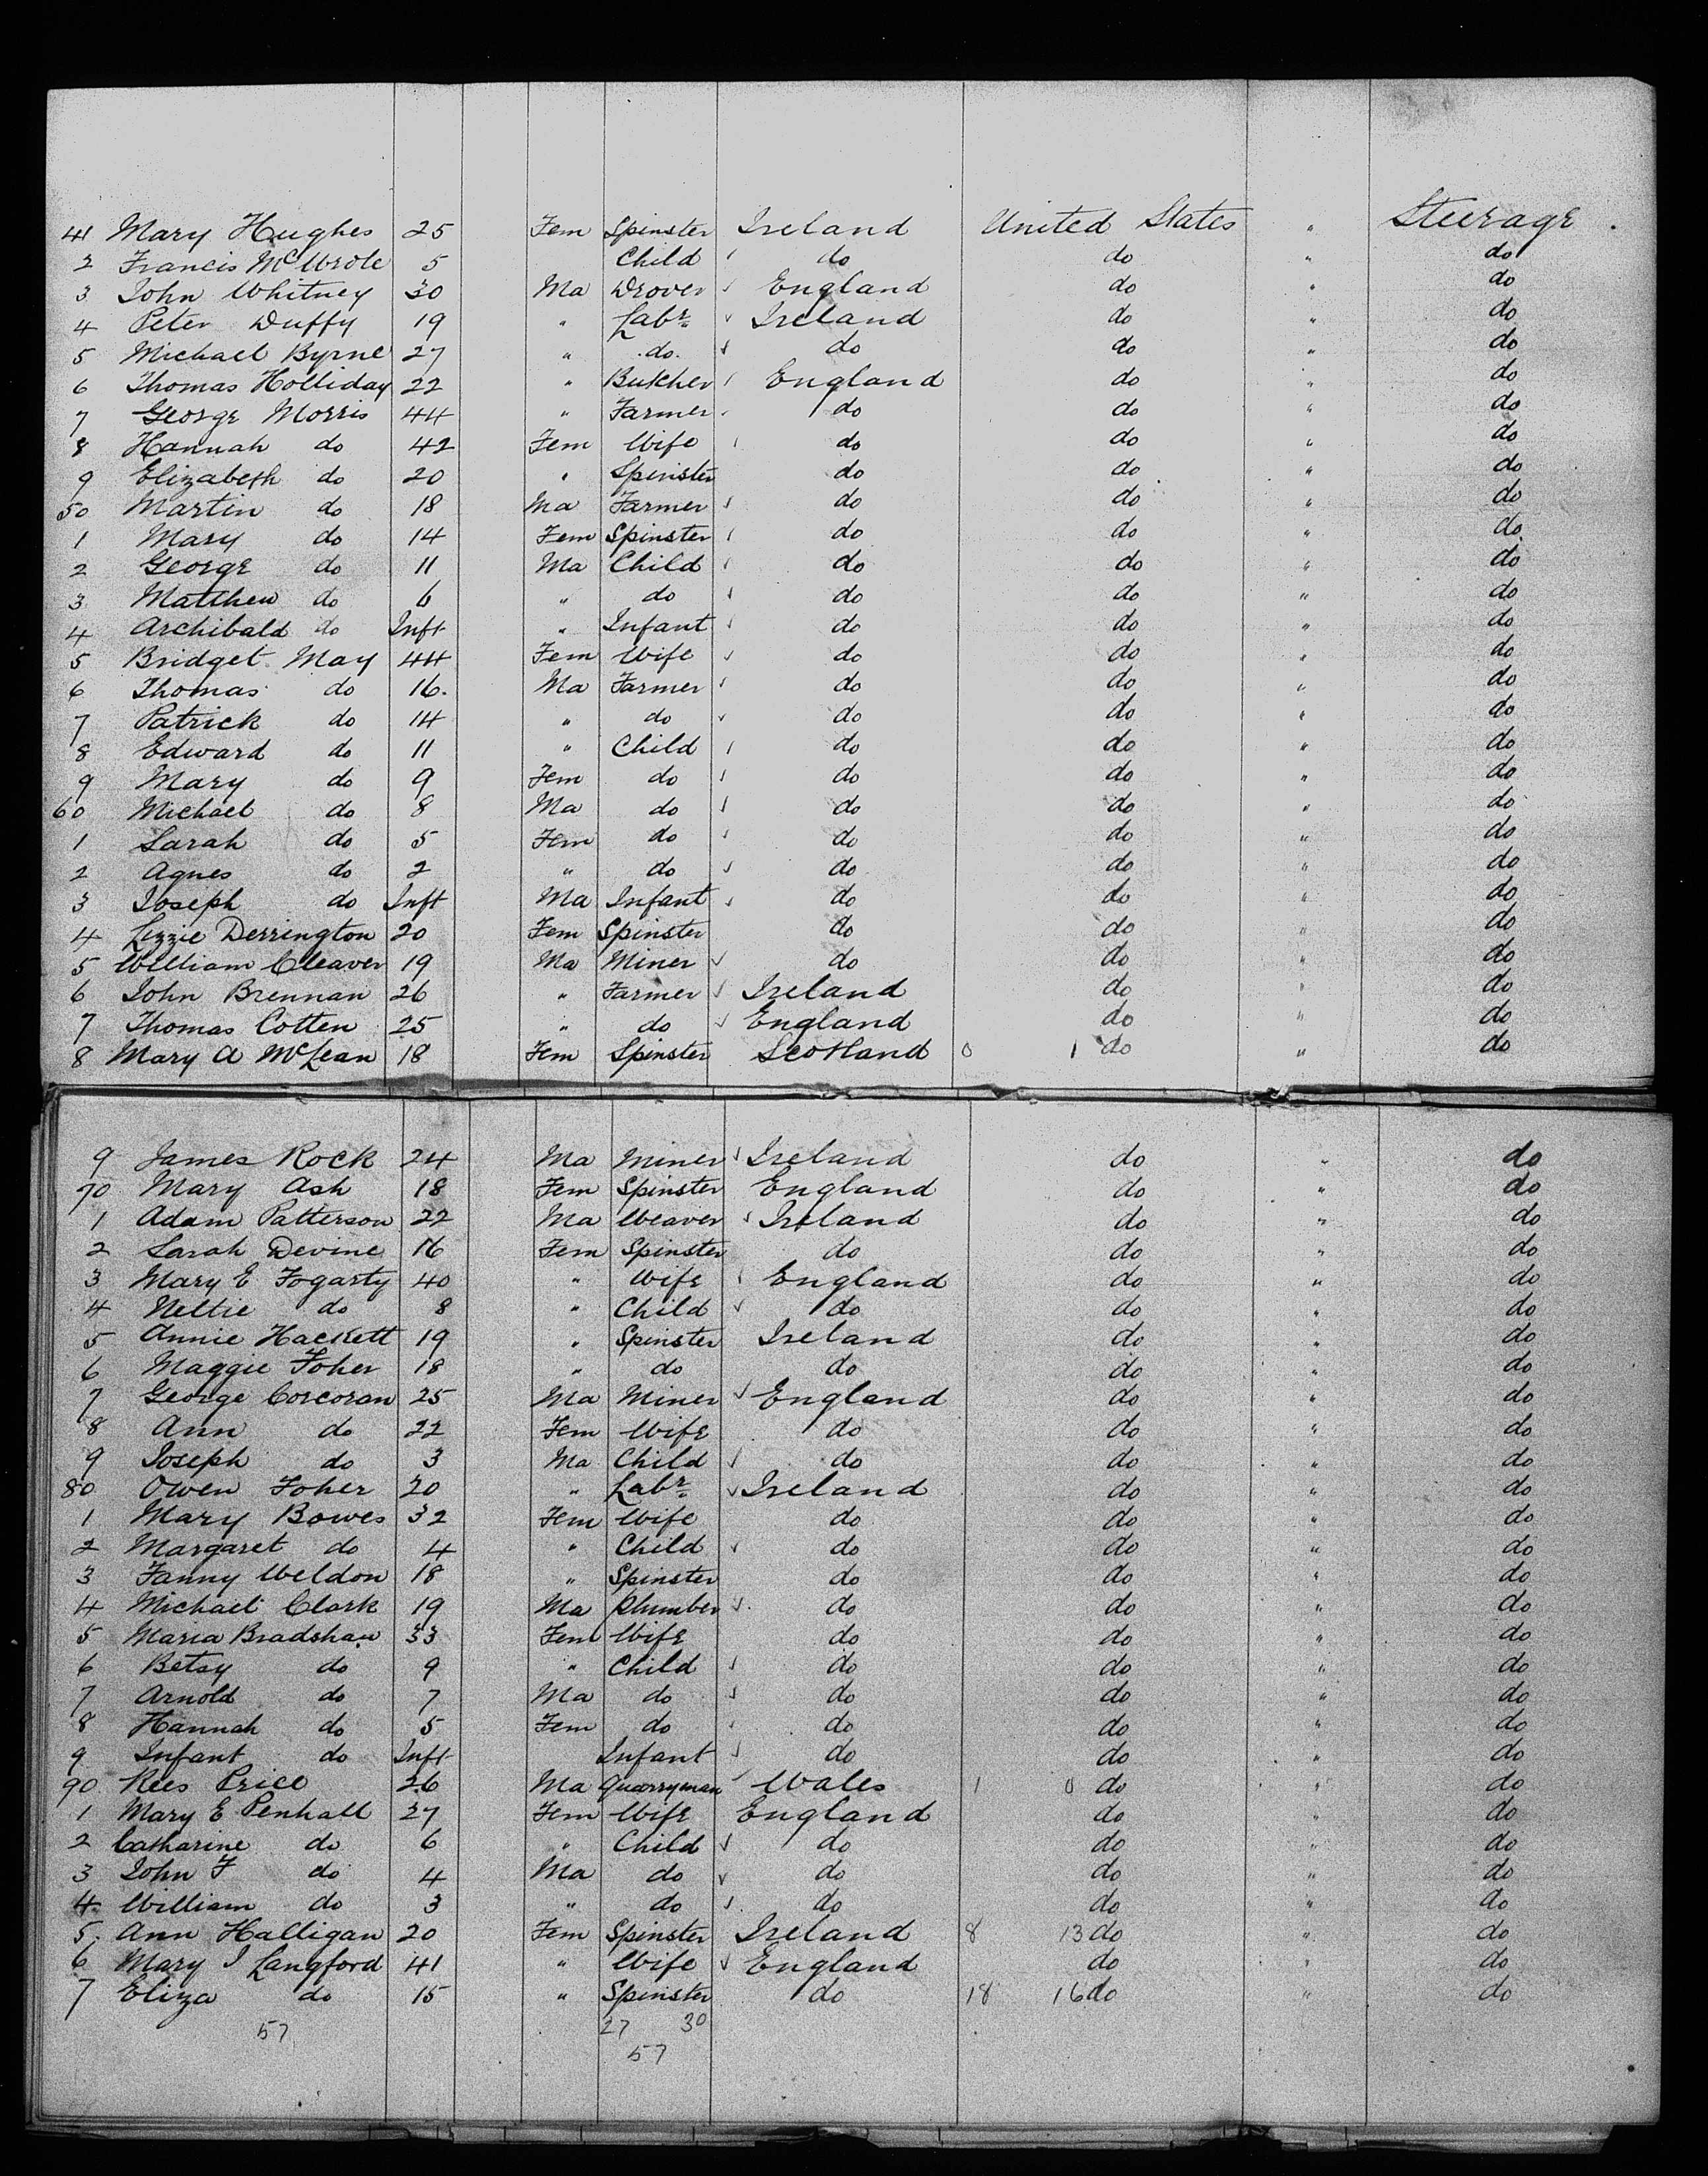 41 Mary Hughes 25 Fem Spinster Ireland United States " Steerage
2 Francis McWrole 5 Child do do " do
3 John Whitney 30 Ma Drover England do " do
4 Peter Duffy 19 " Labr Ireland do " do
5 Michael Byrne 27 " do do do " do
6 Thomas Holliday 22 " Butcher England do " do
7 George Morris 44 " Farmer do do " do
8 Hannah do 42 Fem Wife do do " do
9 Elizabeth do 20 " Spinster do do " do
50 Martin do 18 Ma Farmer do do " do
1 Mary do 14 Fem Spinster do do " do
2 George do 11 Ma Child do do " do
3 Matthew do 6 " do do do " do
4 Archibald do Inft " Infant do do " do
5 Bridget May 44 Fem Wife do do " do
6 Thomas do 16 Ma Farmer do do " do
7 Patrick do 14 " do do do " do
8 Edward do 11 " Child do do " do
9 Mary do 9 Fem do do do " do
60 Michael do 8 Ma do do do " do
1 Sarah do 5 Fem do do do " do
2 Agnes do 2 " do do do " do
3 Joseph do Inft Ma Infant do do " do
4 Lizzie Derrington 20 Fem Spinster do do " do
5 William Cleaver 19 Ma Miner do do " do
6 John Brennan 26 " Farmer Ireland do " do
7 Thomas Cotten 25 " do England do " do
8 Mary A McLean 18 Fem Spinster Scotland 0 1 do " do
9 James Rock 24 Ma Miner Ireland do " do
70 Mary Ash 18 Fem Spinster England do " do
1 Adam Patterson 22 Ma Weaver Ireland do " do
2 Sarah Devine 16 Fem Spinster do do " do
3 Mary E Fogarty 40 " Wife England do " do
4 Nettie do 8 " Child do do " do
5 Annie Hackett 19 " Spinster Ireland do " do
6 Maggie Foher 18 " do do do " do
7 George Corcoran 25 Ma Miner England do " do
8 Ann do 22 Fem Wife do do " do
9 Joseph do 3 Ma Child do do " do
80 Owen Foher 20 " Labr Ireland do " do
1 Mary Bowes 32 Fem Wife do do " do
2 Margaret do 4 " Child do do " do
3 Fanny Weldon 18 " Spinster do do " do
4 Michael Clark 19 Ma Plumber do do " do
5 Maria Bradshaw 33 Fem Wife do do " do
6 Betsy do 9 " Child do do " do
7 Arnold do 7 Ma do do do " do
8 Hannah do 5 Fem do do do " do
9 Infant do Inft Infant do do " do
90 Rees Price 26 Ma Quarryman Wales 1 0 do " do
1 Mary E Penhall 27 Fem Wife England do " do
2 Catharine do 6 " Child do do " do
3 John F do 4 Ma do do do " do
4 William do 3 " do do do " do
5 Ann Halligan 20 Fem Spinster Ireland 8 13 do " do
6 Mary J Langford 41 " Wife England do " do
7 Eliza do 15 " Spinster do 18 16 do " do
57 27 30
57